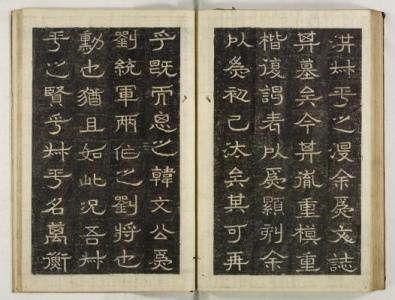 洪艸平之没余爲文誌
其墓矣今其胤重模重
楷復謁者以爲顯刻余
以爲初已汰矣其可再
乎既而思之韓文公爲
劉統軍兩作之劉將也
勳也猶且如此況吾艸
平之賢乎艸平名萬衡